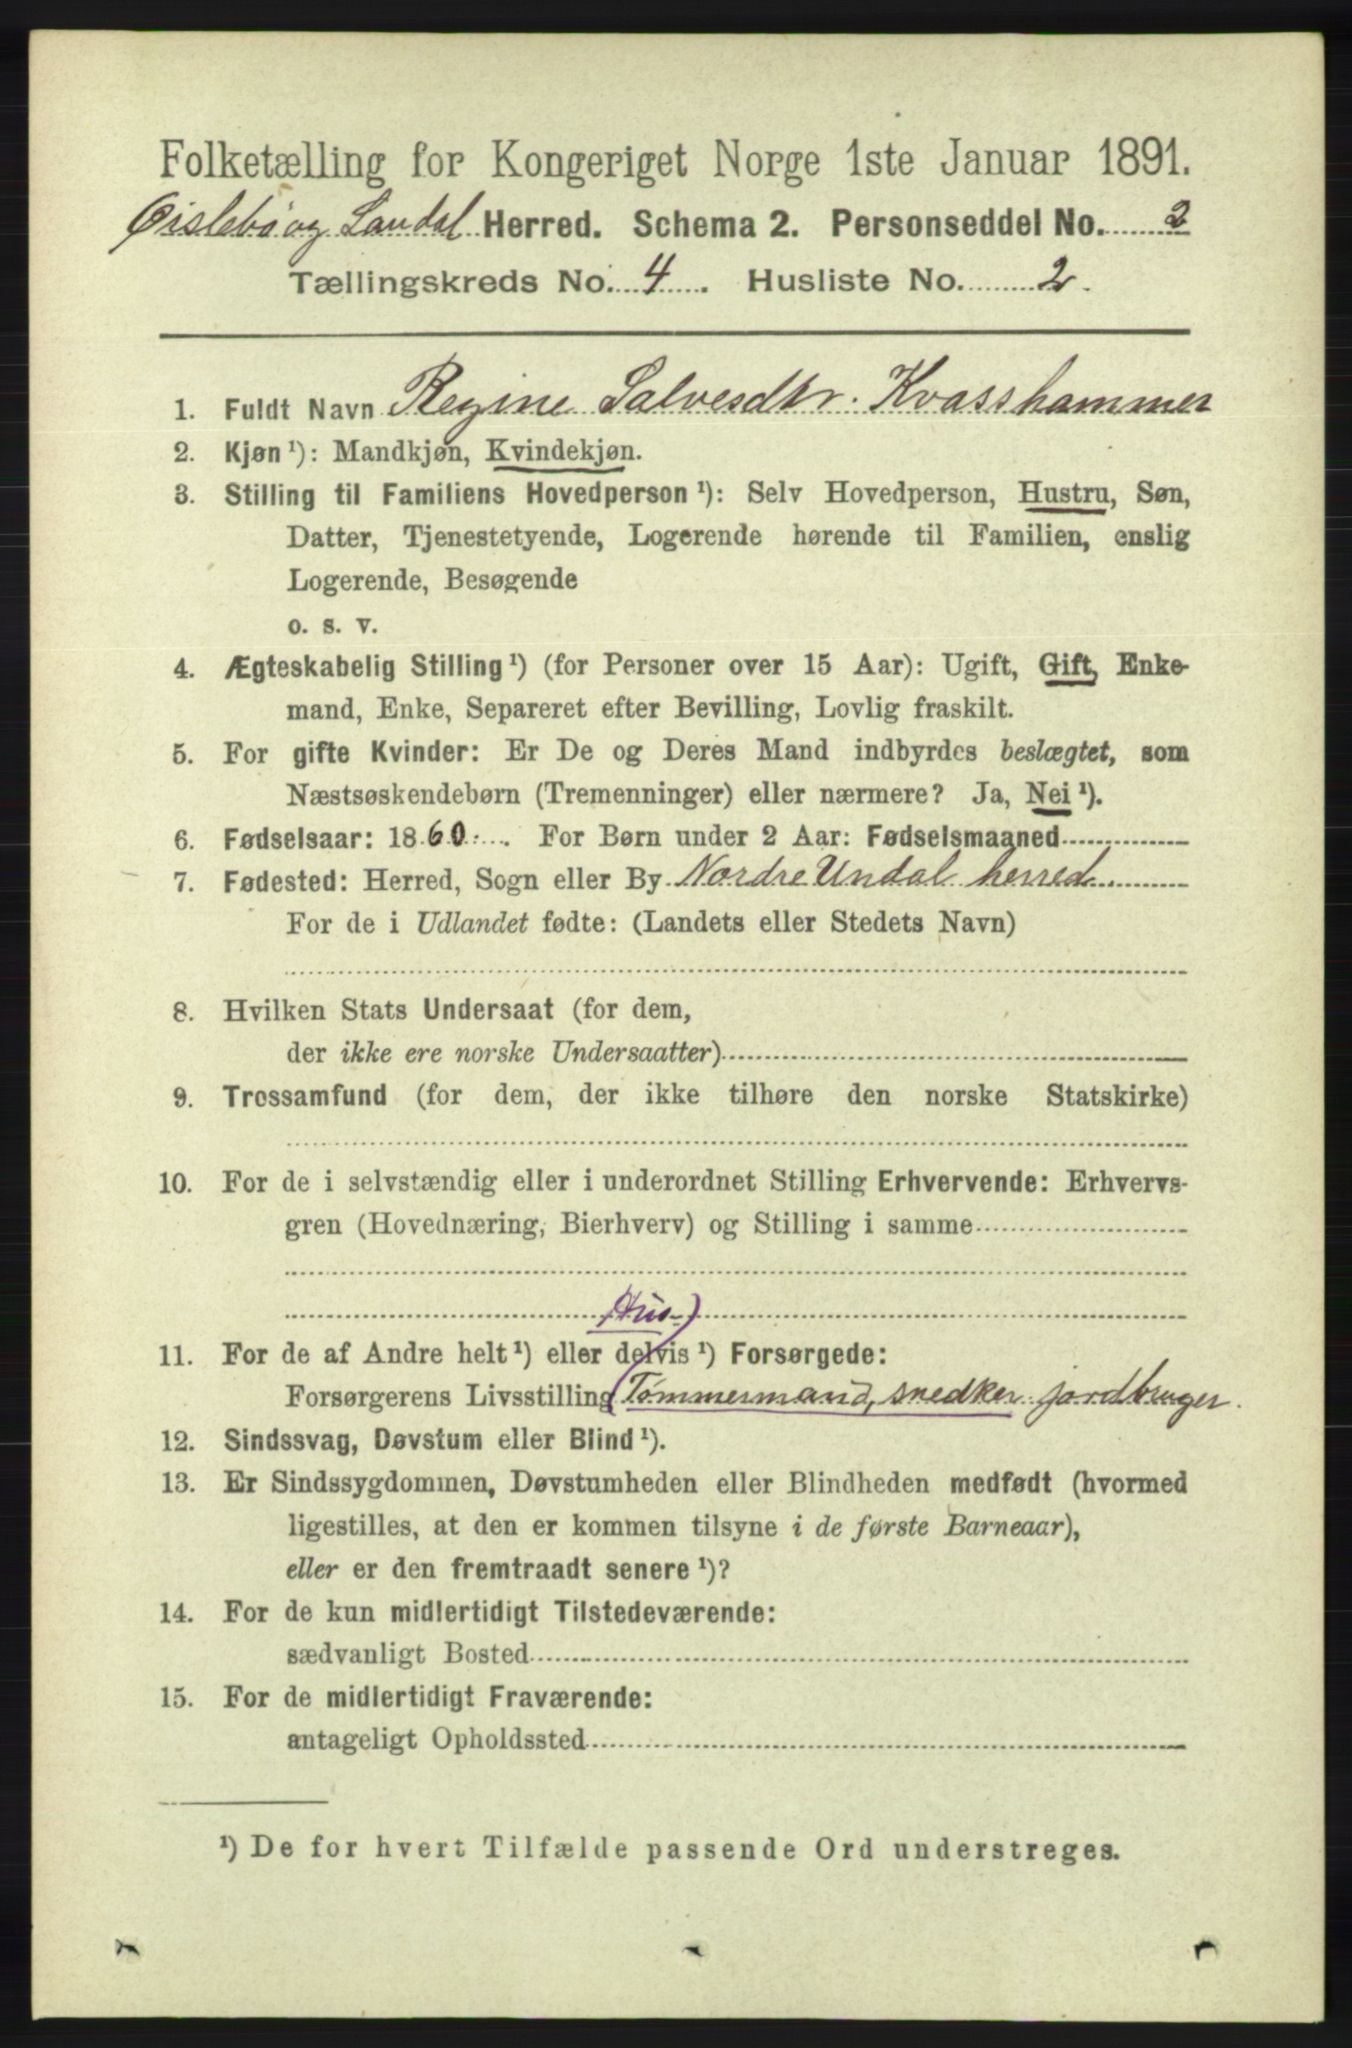 Folketælling for Kongeriget Norge 1ste Januar 1891.
Øislebø og Laudal Herred. Schema 2. Personseddel No. 2
Tællingskreds No. 4. Husliste No. 2.
1. Fuldt Navn Regine Salvesdtr. Kvasshammer
2. Kjøn ¹): Mandkjøn, Kvindekjøn.
3. Stilling til Familiens Hovedperson ¹): Selv Hovedperson, Hustru, Søn,
Datter, Tjenestetyende, Logerende hørende til Familien, enslig
Logerende, Besøgende
o. s. v.
4. Ægteskabelig Stilling ¹) (for Personer over 15 Aar): Ugift, Gift, Enke-
mand, Enke, Separeret efter Bevilling, Lovlig fraskilt.
5. For gifte Kvinder: Er De og Deres Mand indbyrdes beslægtet, som
Næstsøskendebørn (Tremenninger) eller nærmere? Ja, Nei ¹).
6. Fødselsaar: 1860. For Børn under 2 Aar: Fødselsmaaned
7. Fødested: Herred, Sogn eller By Nordre Undal herred
For de i Udlandet fødte: (Landets eller Stedets Navn)
8. Hvilken Stats Undersaat (for dem,
der ikke ere norske Undersaatter)
9. Trossamfund (for dem, der ikke tilhøre den norske Statskirke)
10. For de i selvstændig eller i underordnet Stilling Erhvervende: Erhvervs-
gren (Hovednæring, Bierhverv) og Stilling i samme
(Hus-)
11. For de af Andre helt ¹) eller delvis ¹) Forsørgede:
Forsørgerens Livsstilling (Tømmermand, snedker jordbruger.
12. Sindssvag, Døvstum eller Blind ¹).
13. Er Sindssygdommen, Døvstumheden eller Blindheden medfødt (hvormed
ligestilles, at den er kommen tilsyne i de første Barneaar),
eller er den fremtraadt senere ¹)?
14. For de kun midlertidigt Tilstedeværende:
sædvanligt Bosted
15. For de midlertidigt Fraværende:
antageligt Opholdssted
¹) De for hvert Tilfælde passende Ord understreges.